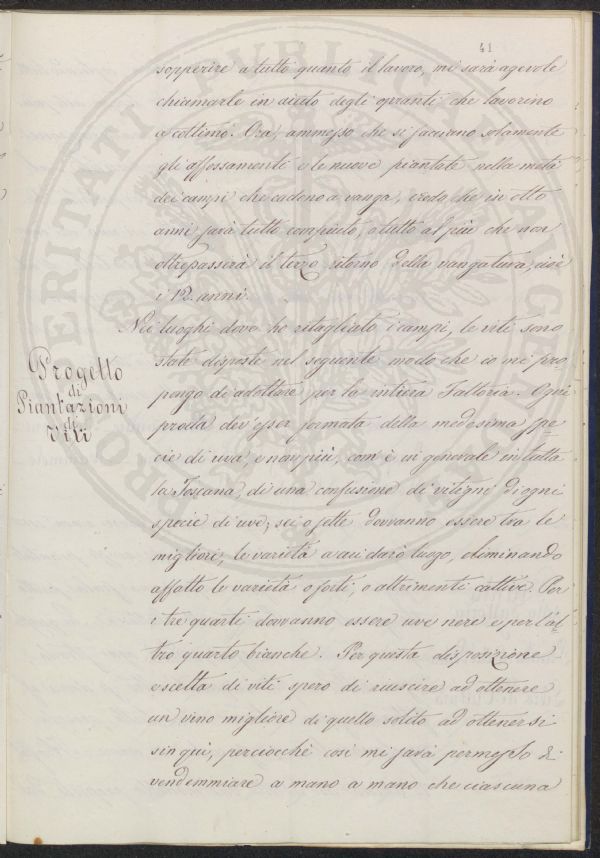 41
sopperire a tutto quanto il lavoro, mi sarà agevole
chiamarle in aiuto degli opranti che lavorino
a cottimo. Ora, ammesso che si facciano solamente
gli affossamenti e le nuove piantate nella metà
dei campi che cadono a vanga, credo, che in otto
anni sarà tutto compiuto, o tutto al più che non
oltrepasserà il terzo ritorno della vangatura, cioè
i 12. anni.
Nei luoghi dove ho ritagliato i campi, le viti sono
state disposte nel seguente modo che io mi pro-
pongo di adottare per la intiera Fattoria. Ogni
Progetto
di
Piantazioni
di
Viti
proda dev'esser formata della medesima spe-
cie di uva, e non più, com'è in generale in tutta
la Toscana, di una confusione di vitigni di ogni
specie di uve; sei o sette dovranno essere tra le
migliori, le varietà a cui darò luogo, eliminando
affatto le varietà o forti, o altrimenti cattive. Per
i tre quarti dovranno essere uve nere e per l'al-
tro quarto bianche. Per questa disposizione
e scelta di viti spero di riuscire ad ottenere
un vino migliore di quello solito ad ottenersi
sin qui, perciocchè così mi sarà permesso di
vendemmiare a mano a mano che ciascuna